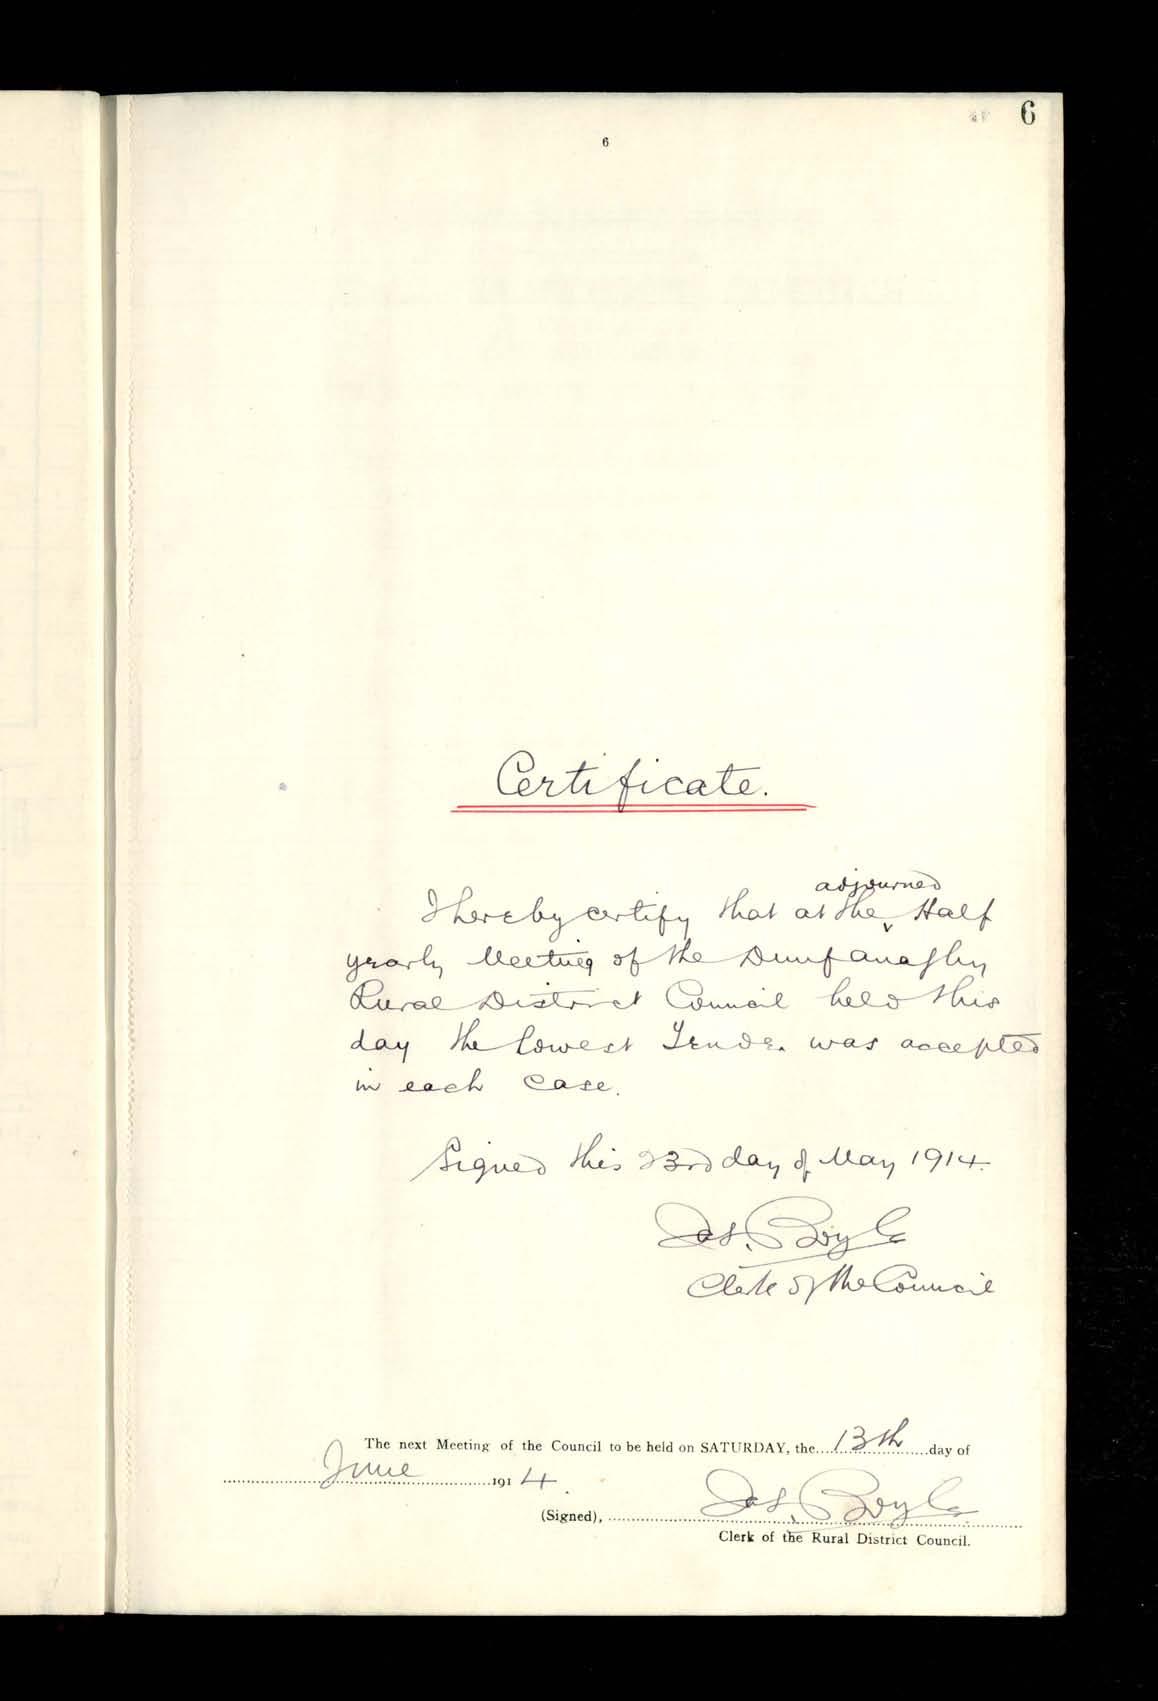 6
6
Certificate.
adjourned
I hereby certify that at the Half
yearly Meeting of the Dunfanaghy
Rural District Council held this
day the lowest Tender was accepted
in each case.
Signed this 23rd day of May 1914.
Jas. Boyle
Clerk of the Council
The next Meeting of the Council to be held on SATURDAY, the 13th day of
June 1914.
(Signed), Jas. Boyle
Clerk of the Rural District Council.